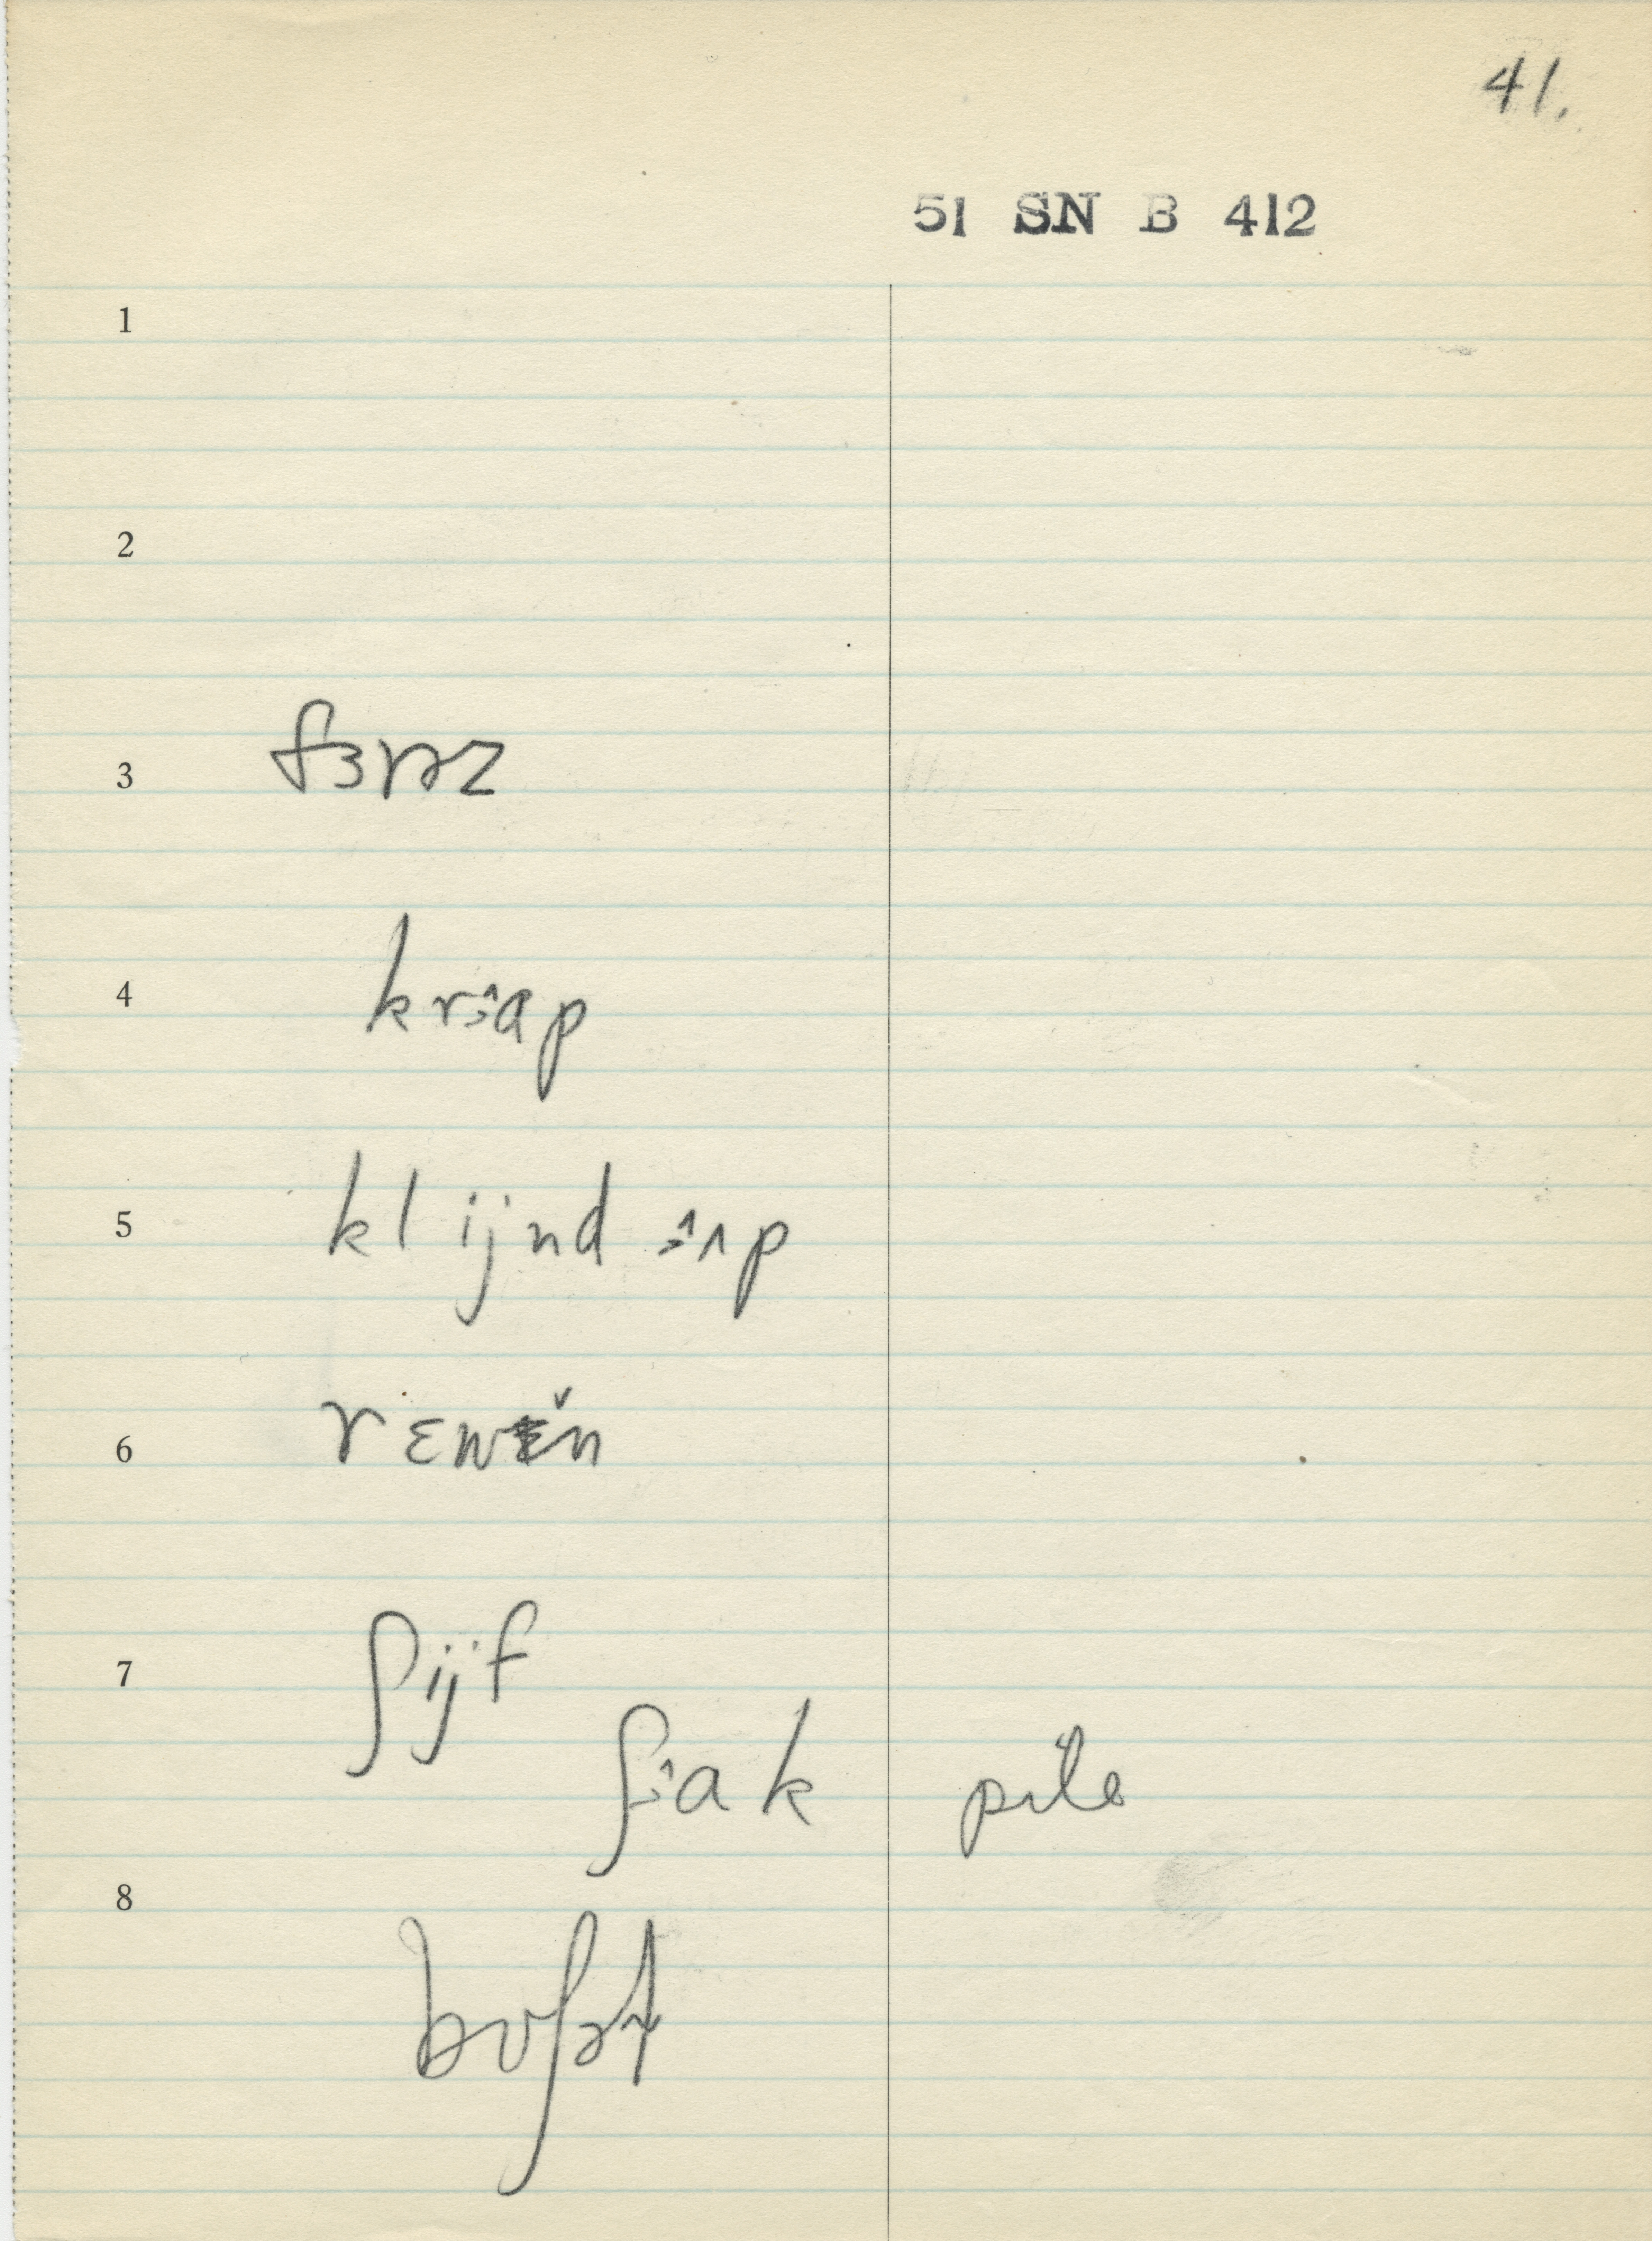 41.
51 SN B 412
1
2
3 fɜrəz
4 krɔ^ap
5 kl ijnd ɔ^ʌp
6 r ɛwɛ̌n
7 ʃijf
ʃɔ^ak pile
8 bʊʃət